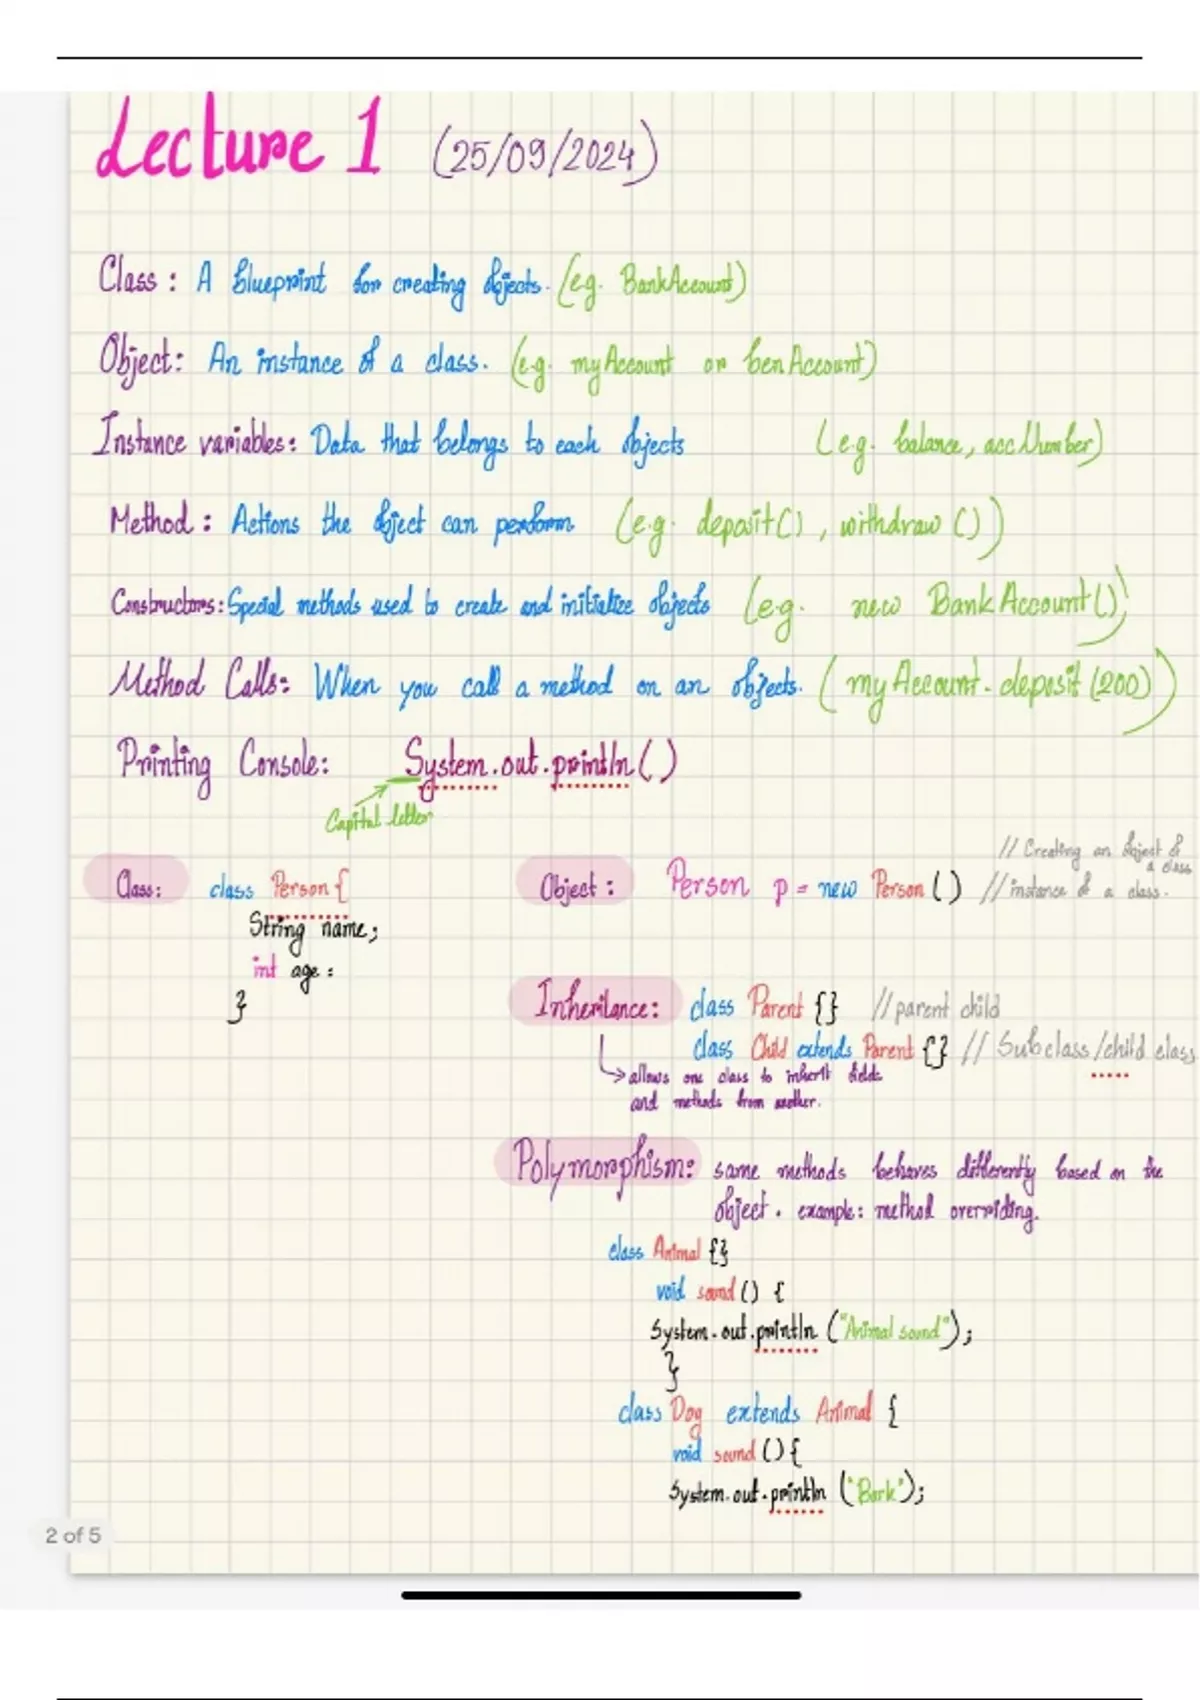 Lecture 1 (25/09/2024)
Class : A blueprint for creating objects. (e.g. BankAccount)
Object: An instance of a class. (e.g. myAccount or benAccount)
Instance variables: Data that belongs to each objects (e.g. balance, accNumber)
Method : Actions the object can perform (e.g. deposit() , withdraw ())
Constructors: Special methods used to create and initialize objects (e.g. new BankAccount())
Method Calls: When you call a method on an objects. (myAccount.deposit(200))
Printing Console: System.out.println()
Capital letter
Class: class Person {
String name;
int age :
}
// Creating an object of a class
Object : Person p = new Person () // instance of a class.
Inheritance: class Parent {} // parent child
class Child extends Parent {} // Subclass/child class
allows one class to inherit fields
and methods from another.
Polymorphism: same methods behaves differently based on the
object. example: method overriding.
class Animal {}
void sound () {
System.out.println ("Animal sound");
}
class Dog extends Animal {
void sound () {
System.out.println ("Bark");
2 of 5